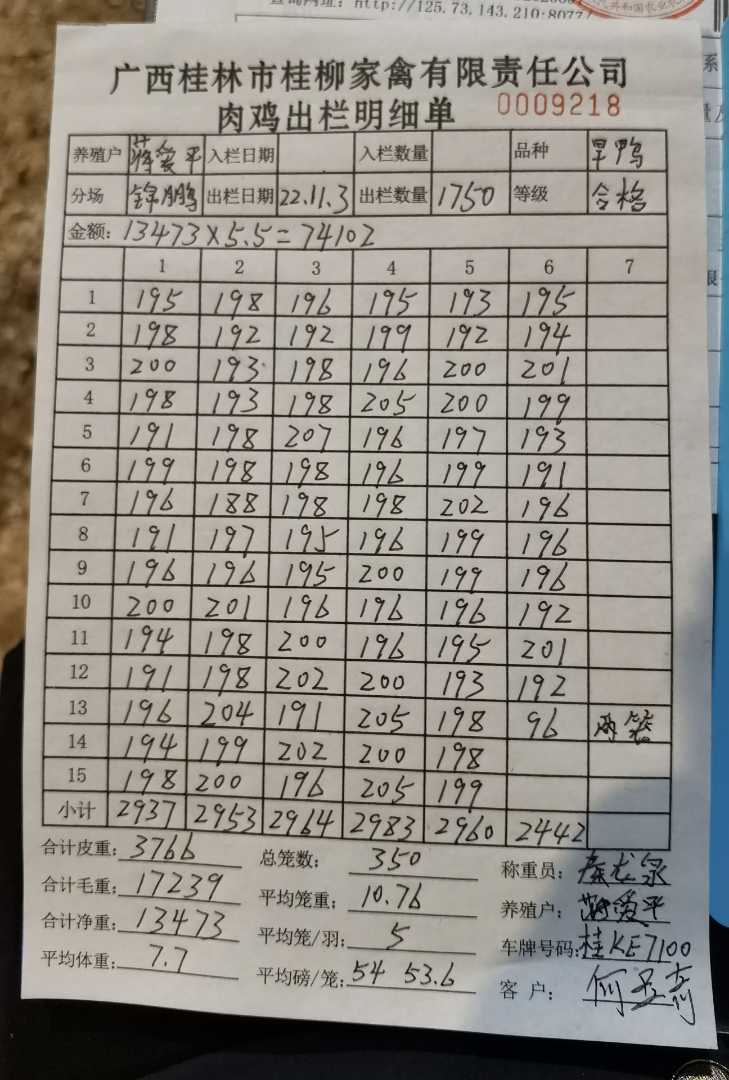 查询网址: http://125.73.143.210:8077/
广西桂林市桂柳家禽有限责任公司
肉鸡出栏明细单 0009218
养殖户 蒋爱平 入栏日期 入栏数量 品种 旱鸭
分场 锦鹏 出栏日期 22.11.3 出栏数量 1750 等级 合格
金额: 13473×5.5=74102
1 2 3 4 5 6 7
1 195 198 196 195 193 195
2 198 192 192 199 192 194
3 200 193 198 196 200 201
4 198 193 198 205 200 199
5 191 198 207 196 197 193
6 199 198 198 196 199 191
7 196 188 198 198 202 196
8 191 197 195 196 199 196
9 196 196 195 200 199 196
10 200 201 196 196 196 192
11 194 198 200 196 195 201
12 191 198 202 200 193 192
13 196 204 191 205 198 96 两笼
14 194 199 202 200 198
15 198 200 196 205 199
小计 2937 2953 2964 2983 2960 2442
合计皮重: 3766 总笼数: 350 称重员: 秦龙泉
合计毛重: 17239 平均笼重: 10.76 养殖户: 蒋爱平
合计净重: 13473 平均笼/羽: 5 车牌号码: 桂KE7100
平均体重: 7.7 平均磅/笼: 54 53.6 客户: 何